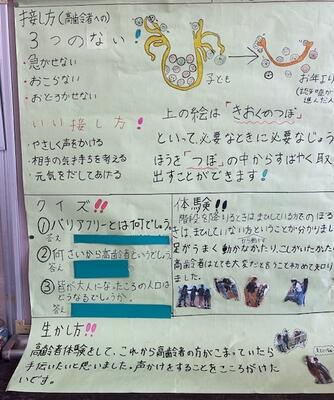 接し方(高齢者への)
3つのない!
・急かせない
・おこらない
・おどろかせない
子ども
お年より
いい接し方!
・やさしく声をかける
・相手の気持ちを考える
・元気をだしてあげる
上の絵は「きおくのつぼ」
といって、必要なときに必要なじょう
ほうを「つぼ」の中からすばやく取り
出すことができます!
クイズ!!
①バリアフリーとは何でしょう。
答え
②何さいから高齢者というでしょう。
答え
③皆が大人になったころの人口は
どうなるでしょうか。
答え
体験!!
足がうまく動かなかったり、こしがいたかったり
高齢者はとても大変だということを初めて知り
ました。
生かし方!!
高齢者体験をして、これから高齢者の方がこまっていたら
手伝いたいと思いました。声かけをすることをこころがけた
いです。